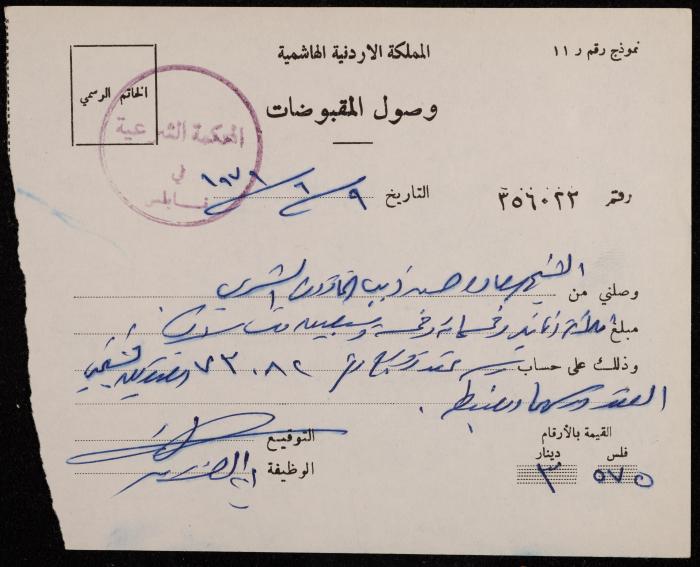 نموذج رقم ر ١١
المملكة الاردنية الهاشمية
الخاتم الرسمي
وصول المقبوضات
المحكمة الشرعية
في
نابلس
رقم ٣٥٦٠٢٣
التاريخ ٩ / ٦ / ١٩٧٩
وصلني من الشيخ حسين ذيب المأذون الشرعي
مبلغ ثلاثة دنانير وخمسماية وخمسة وسبعين فلسا
وذلك على حساب رسم عقد زواج رقم ٧٣٠٨٢
العقد
القيمة بالأرقام
فلس دينار
٥٧٥ ٣
التوقيع
الوظيفة